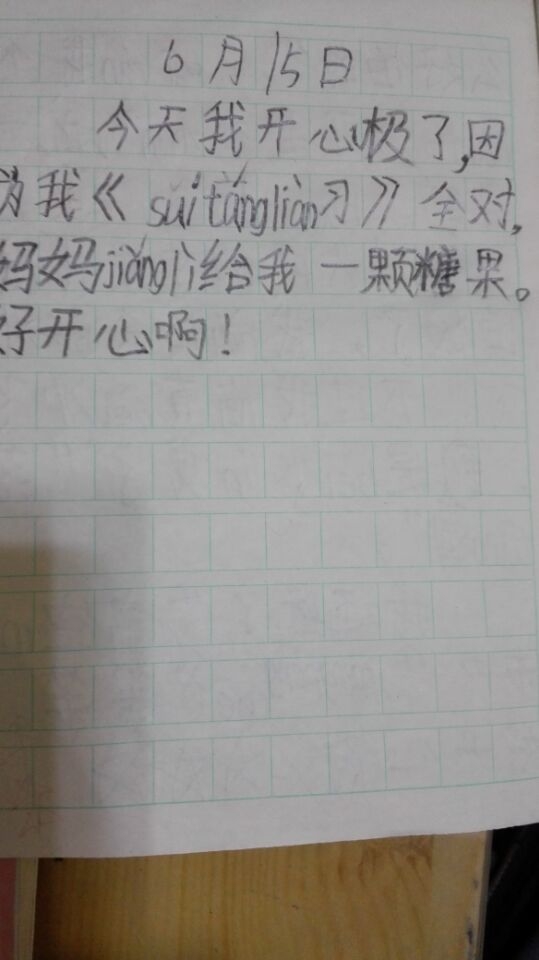 6月15日
今天我开心极了,因
为我《suí táng liàn习》全对,
妈妈jiǎng lì给我一颗糖果。
好开心啊!